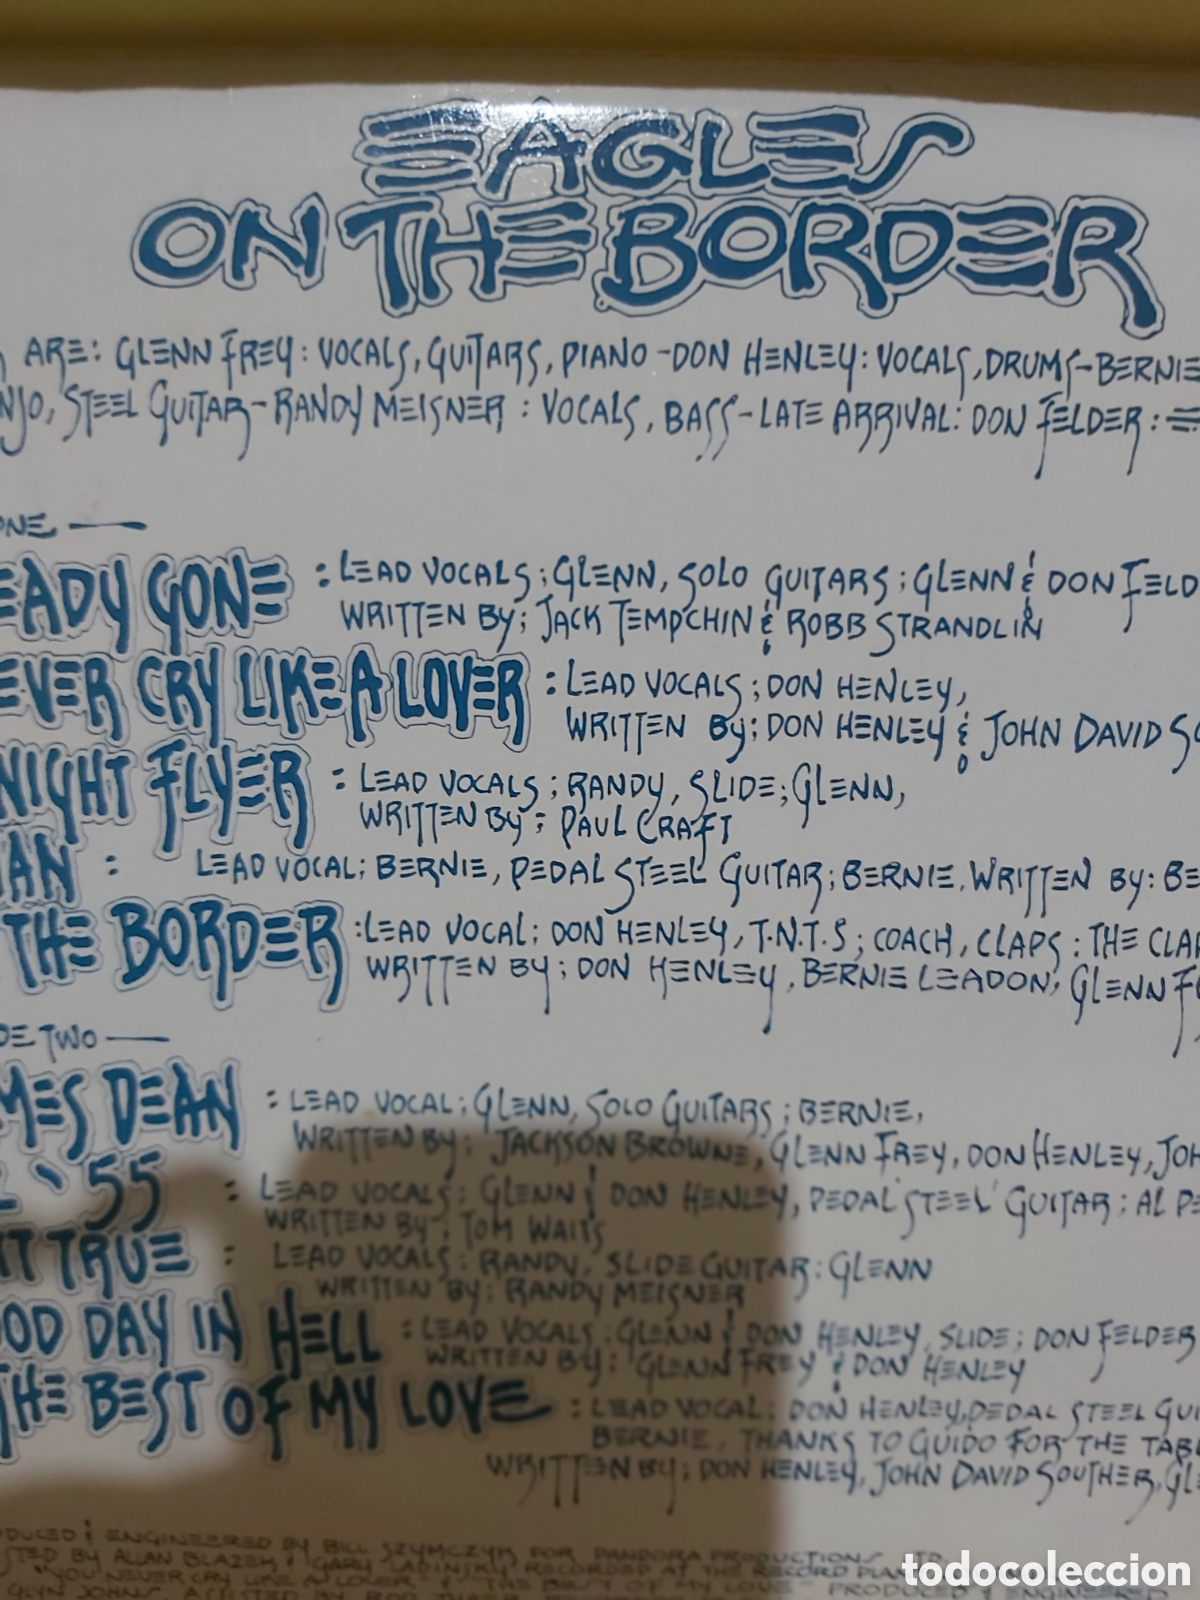 EAGLES
ON THE BORDER
ARE: GLENN FREY: VOCALS, GUITARS, PIANO - DON HENLEY: VOCALS, DRUMS - BERNIE
NJO, STEEL GUITAR - RANDY MEISNER: VOCALS, BASS - LATE ARRIVAL: DON FELDER:
ONE —
EADY GONE : LEAD VOCALS; GLENN, SOLO GUITARS; GLENN & DON FELD
WRITTEN BY; JACK TEMPCHIN & ROBB STRANDLIN
EVER CRY LIKE A LOVER : LEAD VOCALS; DON HENLEY,
WRITTEN BY; DON HENLEY & JOHN DAVID SO
NIGHT FLYER : LEAD VOCALS; RANDY, SLIDE; GLENN,
WRITTEN BY; PAUL CRAFT
AN : LEAD VOCAL; BERNIE, PEDAL STEEL GUITAR; BERNIE. WRITTEN BY: BE
THE BORDER : LEAD VOCAL; DON HENLEY, T.N.T.S; COACH, CLAPS: THE CLAP
WRITTEN BY; DON HENLEY, BERNIE LEADON, GLENN F
DE TWO —
MES DEAN : LEAD VOCAL; GLENN, SOLO GUITARS; BERNIE,
WRITTEN BY; JACKSON BROWNE, GLENN FREY, DON HENLEY, JOH
L '55 : LEAD VOCALS: GLENN & DON HENLEY, PEDAL STEEL GUITAR: AL PE
WRITTEN BY: TOM WAITS
T TRUE : LEAD VOCALS: RANDY, SLIDE GUITAR: GLENN
WRITTEN BY: RANDY MEISNER
OOD DAY IN HELL : LEAD VOCALS; GLENN & DON HENLEY, SLIDE; DON FELDER
WRITTEN BY: GLENN FREY & DON HENLEY
THE BEST OF MY LOVE : LEAD VOCAL: DON HENLEY, PEDAL STEEL GUI
BERNIE, THANKS TO GUIDO FOR THE TAB
WRITTEN BY; DON HENLEY, JOHN DAVID SOUTHER, GLE
DUCED & ENGINEERED BY BILL SZYMCZYK FOR PANDORA PRODUCTIONS LTD.
STED BY ALLAN BLAZEK & GARY LADINSKY RECORDED AT THE RECORD PLAN
"YOU NEVER CRY LIKE A LOVER" & "THE BEST OF MY LOVE" PRODUCED & ENGINEERED
GLYN JOHNS, ASSISTED BY ROD
todocoleccion